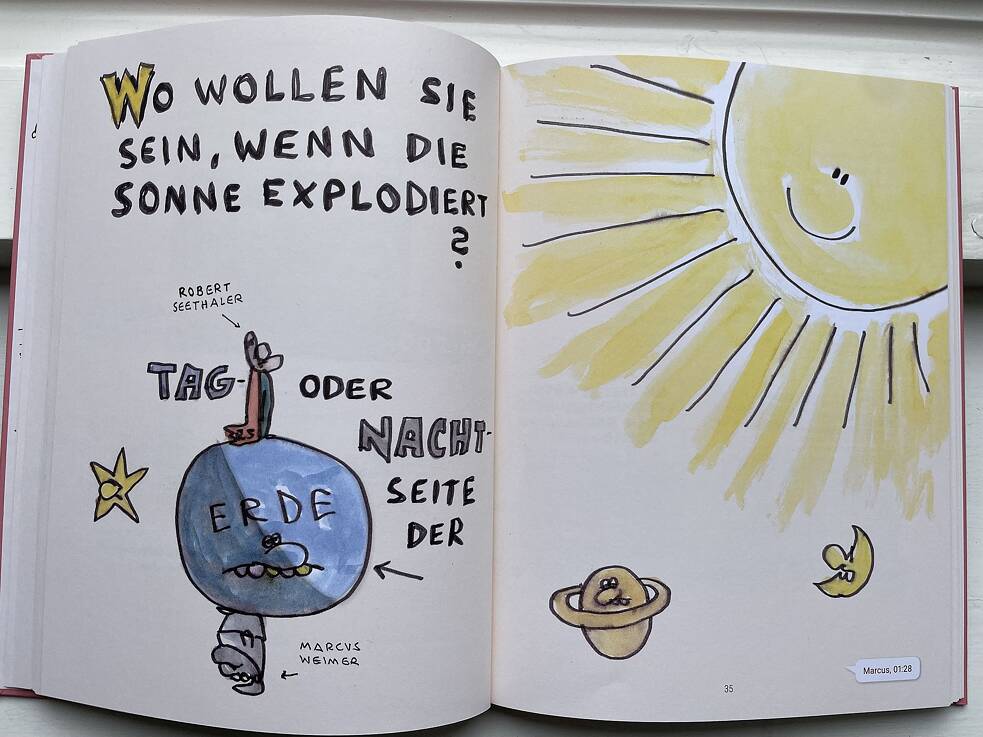 WO WOLLEN SIE
SEIN, WENN DIE
SONNE EXPLODIERT
?
ROBERT
SEETHALER
TAG- ODER
NACHT-
SEITE
DER
ERDE
MARCUS
WEIMER
35
Marcus, 01:28